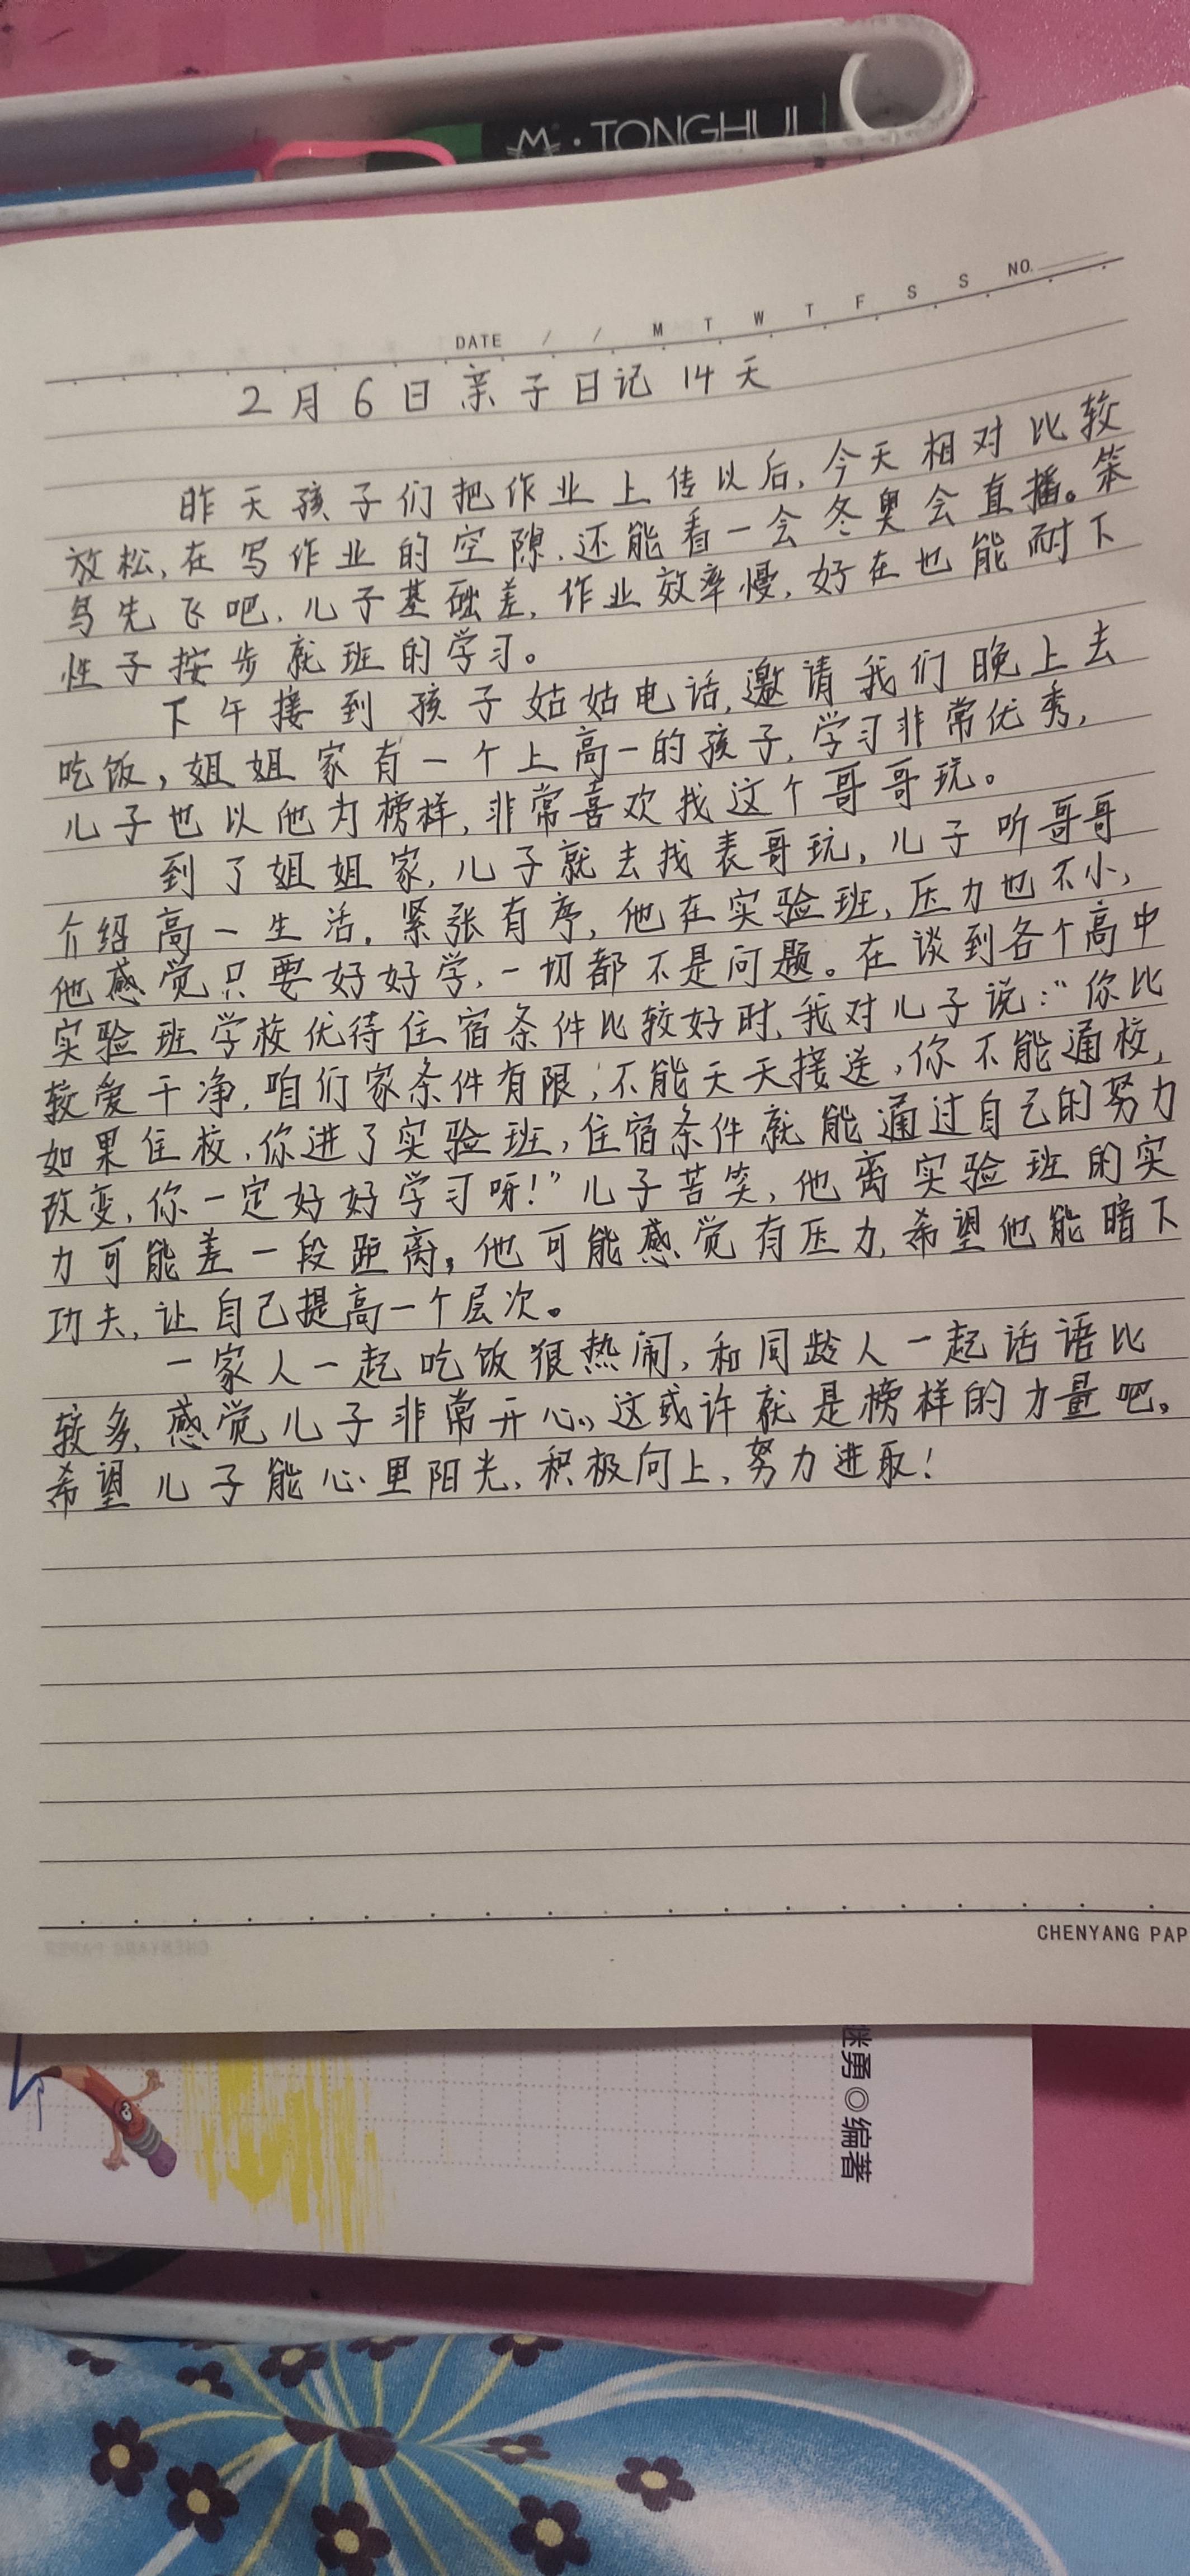 M·TONGHUI
DATE / / M T W T F S S NO.
2月6日亲子日记14天
昨天孩子们把作业上传以后,今天相对比较
放松,在写作业的空隙,还能看一会冬奥会直播。笨
鸟先飞吧,儿子基础差,作业效率慢,好在也能耐下
性子按步就班的学习。
下午接到孩子姑姑电话,邀请我们晚上去
吃饭,姐姐家有一个上高一的孩子,学习非常优秀,
儿子也以他为榜样,非常喜欢找这个哥哥玩。
到了姐姐家,儿子就去找表哥玩,儿子听哥哥
介绍高一生活,紧张有序,他在实验班,压力也不小,
他感觉只要好好学,一切都不是问题。在谈到各个高中
实验班学校优待住宿条件比较好时,我对儿子说:“你比
较爱干净,咱们家条件有限,不能天天接送,你不能通校,
如果住校,你进了实验班,住宿条件就能通过自己的努力
改变,你一定好好学习呀!”儿子苦笑,他离实验班的实
力可能差一段距离,他可能感觉有压力,希望他能暗下
功夫,让自己提高一个层次。
一家人一起吃饭很热闹,和同龄人一起话语比
较多,感觉儿子非常开心,这或许就是榜样的力量吧。
希望儿子能心里阳光,积极向上,努力进取!
CHENYANG PAP
勇◎编著